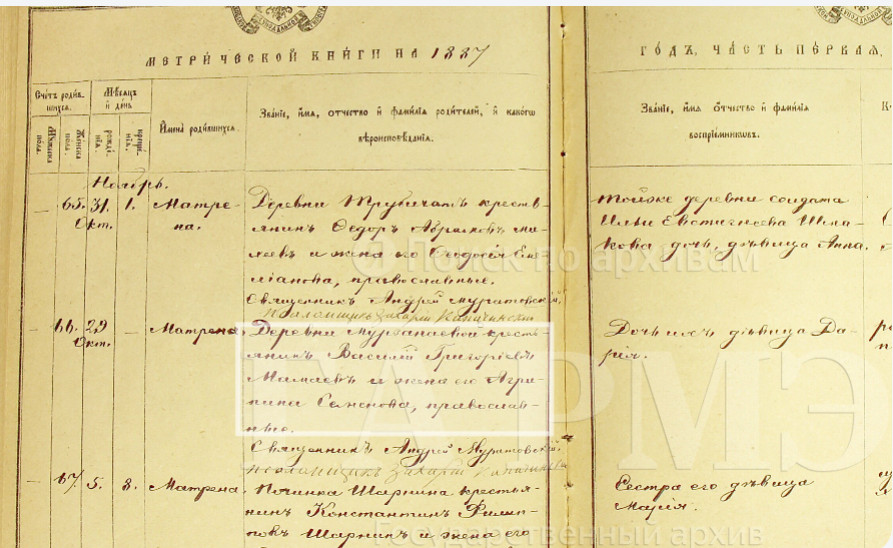 МЕТРИЧЕСКОЙ КНИГИ НА 1887
ГОДЪ, ЧАСТЬ ПЕРВАЯ,
Счетъ родив-
шихся.
Мужеска
пола.
Женска
пола.
Мѣсяцъ
и день
рожде-
нія.
креще-
нія.
Имена родившихся.
Званіе, имя, отчество и фамилія родителей, и какого
вѣроисповѣданія.
Званіе, имя отчество и фамилія
воспріемниковъ.
Ноябрь.
— 65. 31. 1. Матре-
Окт. на.
Деревни кресть-
янинъ Ѳедоръ
и жена его Ѳеодосія Еме-
ліанова, православные.
Священникъ Андрей Муратовскій.
Псаломщикъ Захарій
тойже деревни солдата
Ильи Евстигнеева Шма-
кова дочь, дѣвица Анна.
— 66. 29 — Матрена.
Окт.
Деревни кресть-
янинъ Василій Григоріевъ
Мамаевъ и жена его Агри-
пина Семенова, православ-
ные.
Священникъ Андрей Муратовскій.
Псаломщикъ Захарій
Дочь ихъ дѣвица Да-
рія.
— 67. 5. 8. Матрена.
Починка Шарнина крестья-
нинъ Константинъ Филип-
повъ Шарнинъ и жена его
Сестра его дѣвица
Марія.
Поиск по архивам
ГАРМЭ
Государственный архив